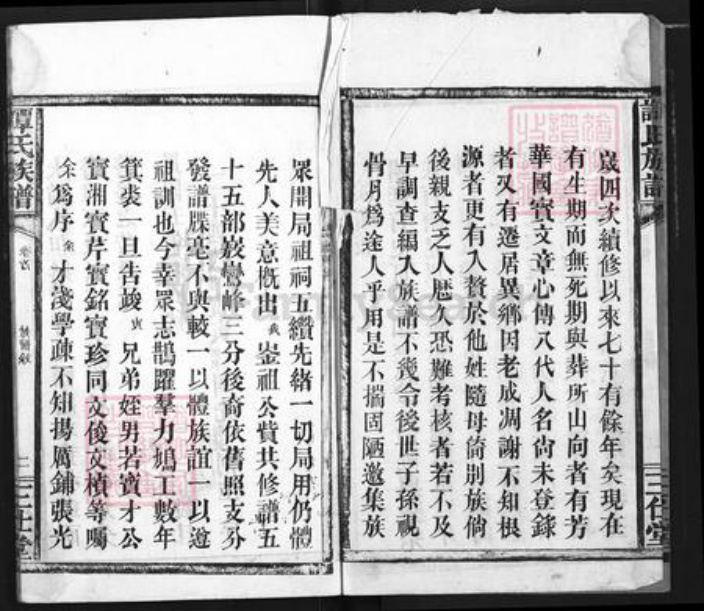 歲四次續修以來七十有餘年矣現在
有生期而無死期與葬所山向者有芳
華國實文章心傳八代人名尙未登錄
者又有遷居異鄉因老成凋謝不知根
源者更有入贅於他姓隨母倚別族倘
後親支乏人歷久恐難考核者若不及
早調查編入族譜不幾令後世子孫視
骨月爲途人乎用是不揣固陋邀集族
眾開局祖祠五纘先緒一切局用仍體
先人美意慨出我崟祖公貲共修譜五
十五部嶔巒峰三分後裔依舊照支分
發譜牒毫不與較一以體族誼一以遵
祖訓也今幸眾志鵲躍羣力鳩工數年
箕裘一旦告竣寅兄弟姪男若寶才公
寶湘寶芹寶銘寶珍同文俊文楨等囑
余爲序余才淺學疎不知揚厲鋪張光
譚氏族譜
卷首
二
三仕堂